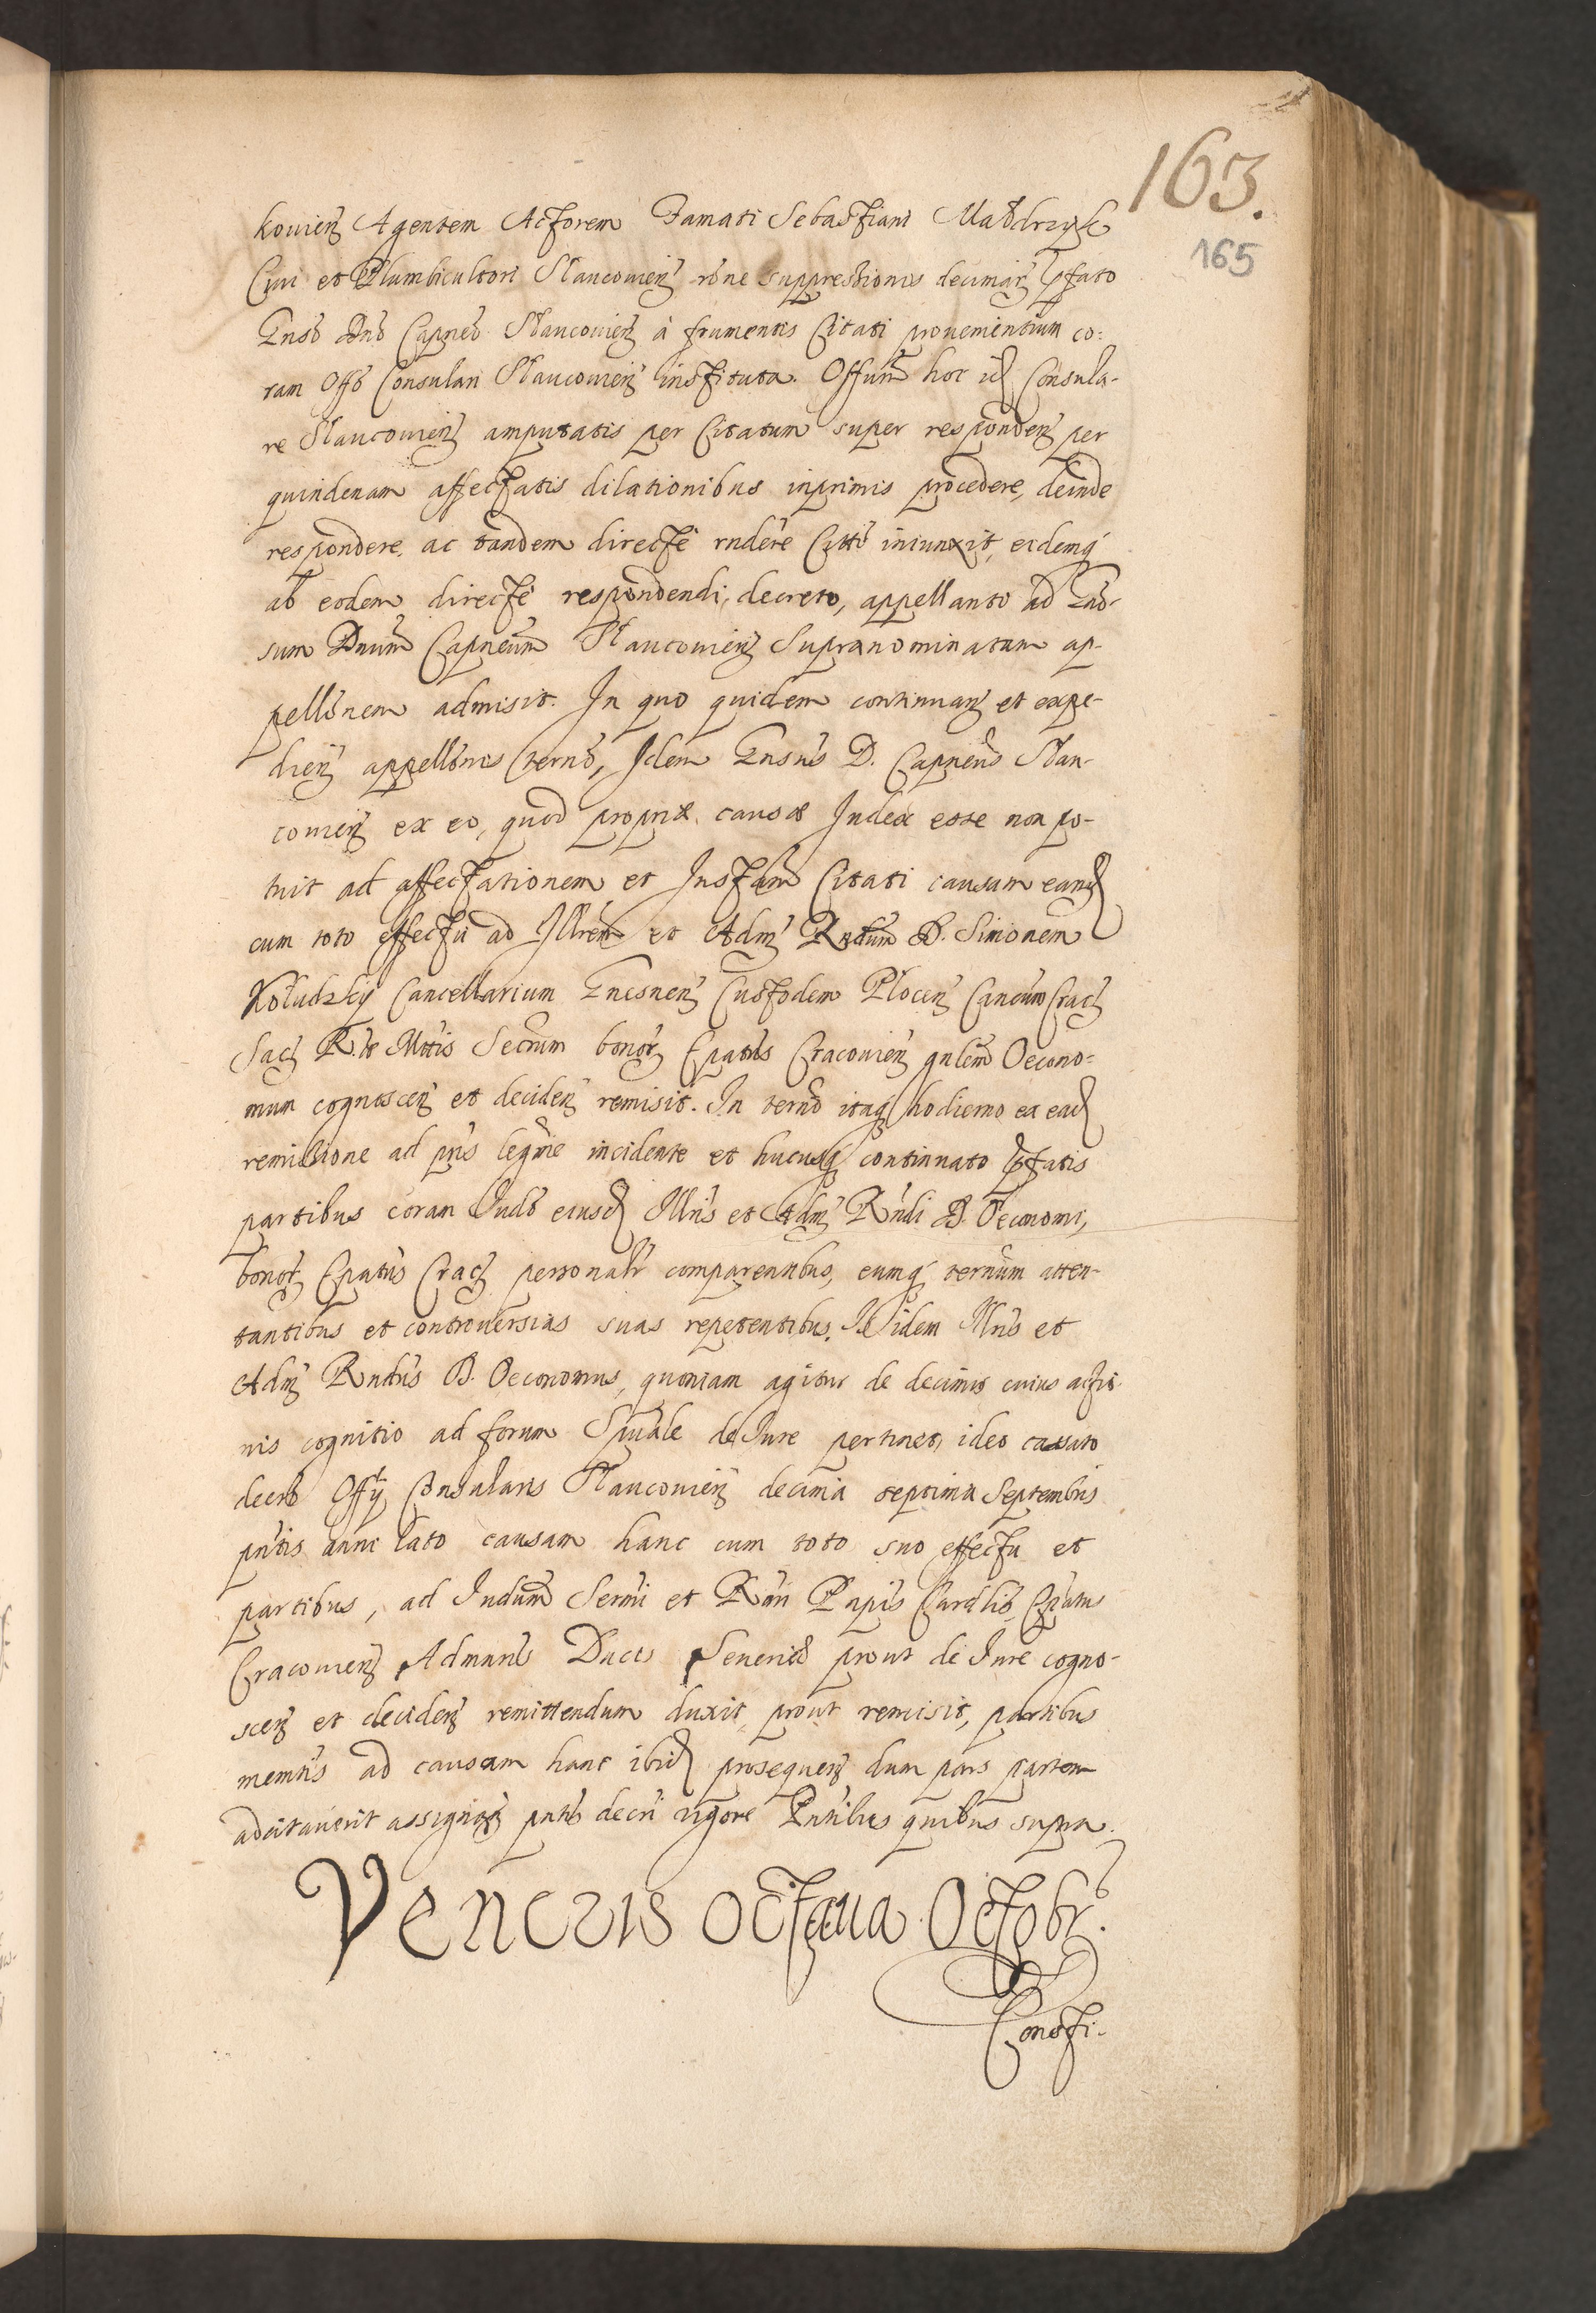 163.
165
kouien Agentem Actorem Famati Sebastiani Madrzyk
Ciui et Plumbicultori Slaucouien rône suppressionis decimar pfato
Gnso Dno Capneo Slaucouien à frumentis Citati prouenientium co:
ram Offo Consulari Slaucouien instituta. Offum hoc id Consula-
re Slaucouien amputatis per Citatum super responden per
quindenam affectatis dilationibus inprimis procedere, deinde
respondere, ac tandem directe rndere Citto iniunxit, eidemq
ab eodem directe respondendi, decreto, appellanto ad Gno-
sum Dnum Capneum Slaucouien Supranominatum ap-
pellonem admisit. In quo quidem continuan et expe-
dien appellonis terno, Idem Gnsus D. Capneus Slau-
couien ex eo, quod propriæ causæ Iudex esse non po-
tuit ad affectationem et Instam Citati causam eand
cum toto effectu ad Illrem et Adm Rndum D. Simonem
Koludzky Cancellarium Gnesnen Custodem Plocen Cancum Crac
Sac R. Mttis Secrum bonor Epatus Cracouien gnlem Oecono-
mum cognoscen et deciden remisit. In terno itaq hodierno ex ead
remissione ad pns legme incidente et hucusq continuato pfatis
partibus coram Iudo eiusd Illris et Adm Rndi D. Oeconomi,
bonor Epatus Crac personalr comparentibus, eumq ternum atten-
tantibus et controuersias suas repetentibus. Idem Illris et
Adm Rndus D. Oeconomus, quoniam agitur de decimis cuius actio
nis cognitio ad forum Spuale de Iure pertinet, ideo cassato
decro Offy Consularis Slaucouien decima septima Septembris
pntis anni lato causam hanc cum toto suo effectu et
partibus, ad Iudum Sermi et Rmi Pnpis Cardlis Epatus
Cracouien Admnris Ducis Seueriæ prout de Iure cogno-
scen et deciden remittendum duxit, prout remisit, partibus
memtis ad causam hanc ibid prosequen dum pars partem
adcitauerit assignan pntis decri vigore Pntibus quibus supra.
Veneris octaua Octobr.
Consti-